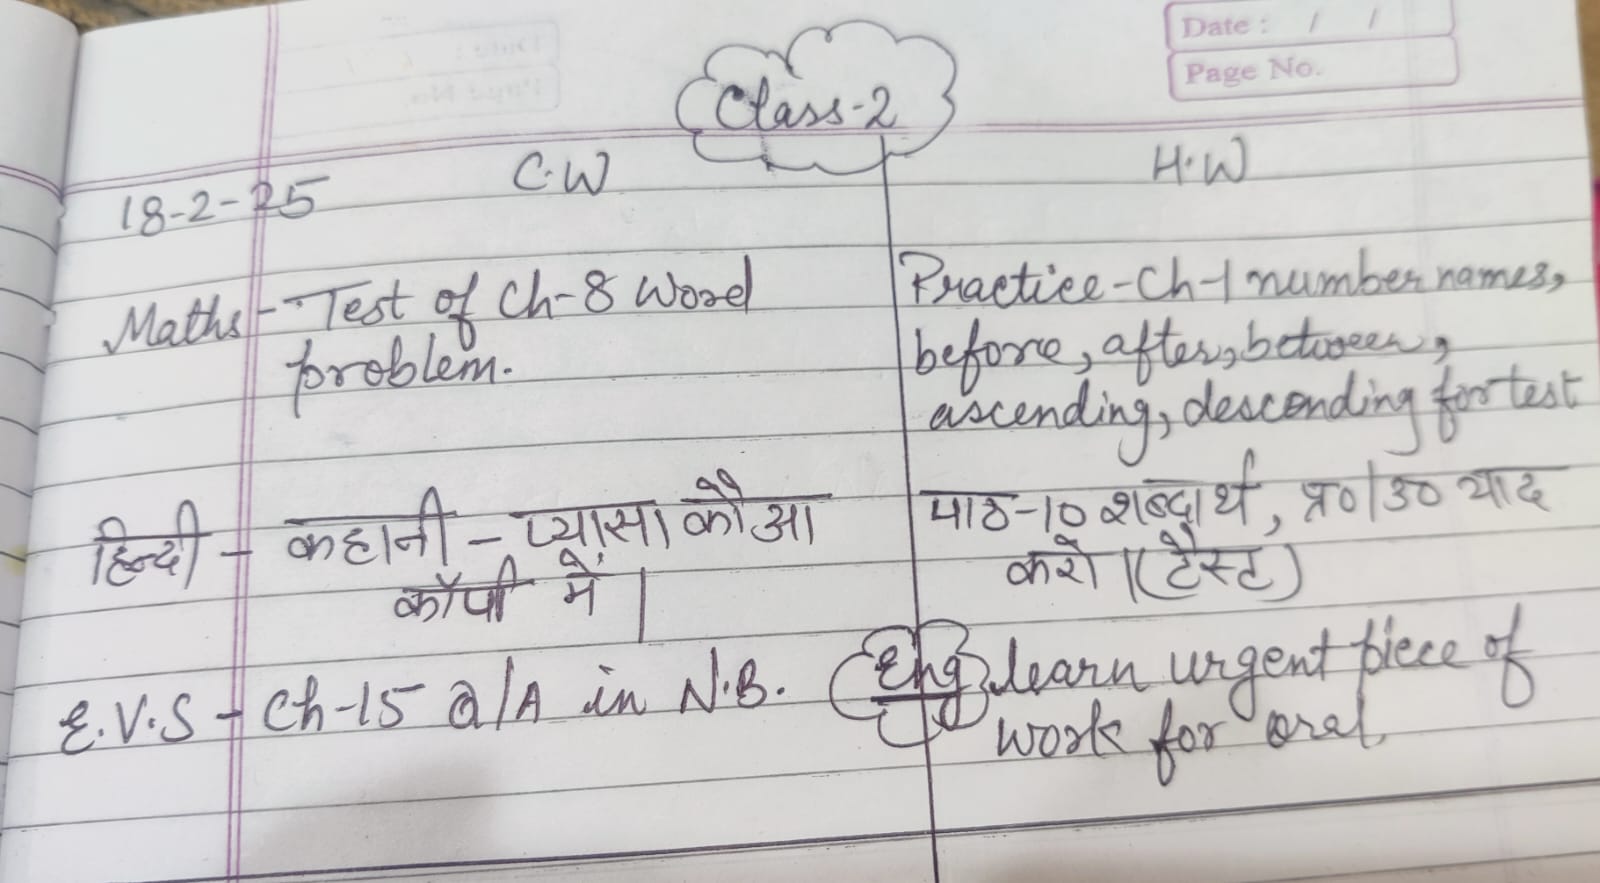 Date : / /
Page No.
Class-2
C.W
H.W
18-2-25
Maths - Test of Ch-8 Word
problem.
Practice-Ch-1 number names,
before, after, between,
ascending, descending for test
हिन्दी - कहानी - प्यासा कौआ
कॉपी में |
पाठ-10 शब्दार्थ, प्र०/उ० याद
करो |(टैस्ट)
E.V.S - Ch-15 Q/A in N.B.
Eng learn urgent piece of
work for oral.